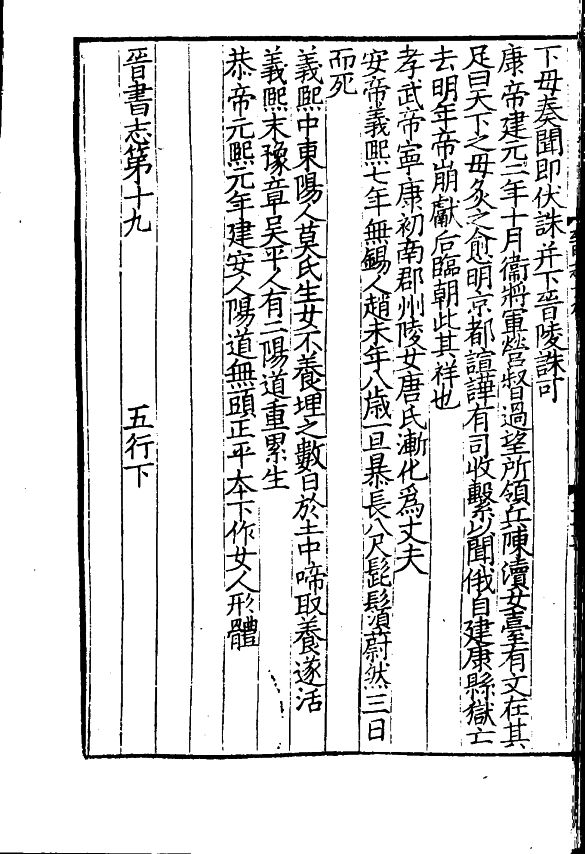 下毋奏聞即伏誅并下晉陵誅可
康帝建元二年十月衞將軍營督過望所領兵陳瀆女臺有文在其
足曰天下之母灸之愈明京都諠譁有司收繫以聞俄自建康縣獄亡
去明年帝崩獻后臨朝此其祥也
孝武帝寧康初南郡州陵女唐氏漸化爲丈夫
安帝義熙七年無錫人趙未年八歳一旦暴長八尺髭鬚蔚然三日
而死
義熙中東陽人莫氏生女不養埋之數日於土中啼取養遂活
義熙末豫章吳平人有二陽道重累生
恭帝元熙元年建安人陽道無頭正平本下作女人形體
晉書志第十九　五行下